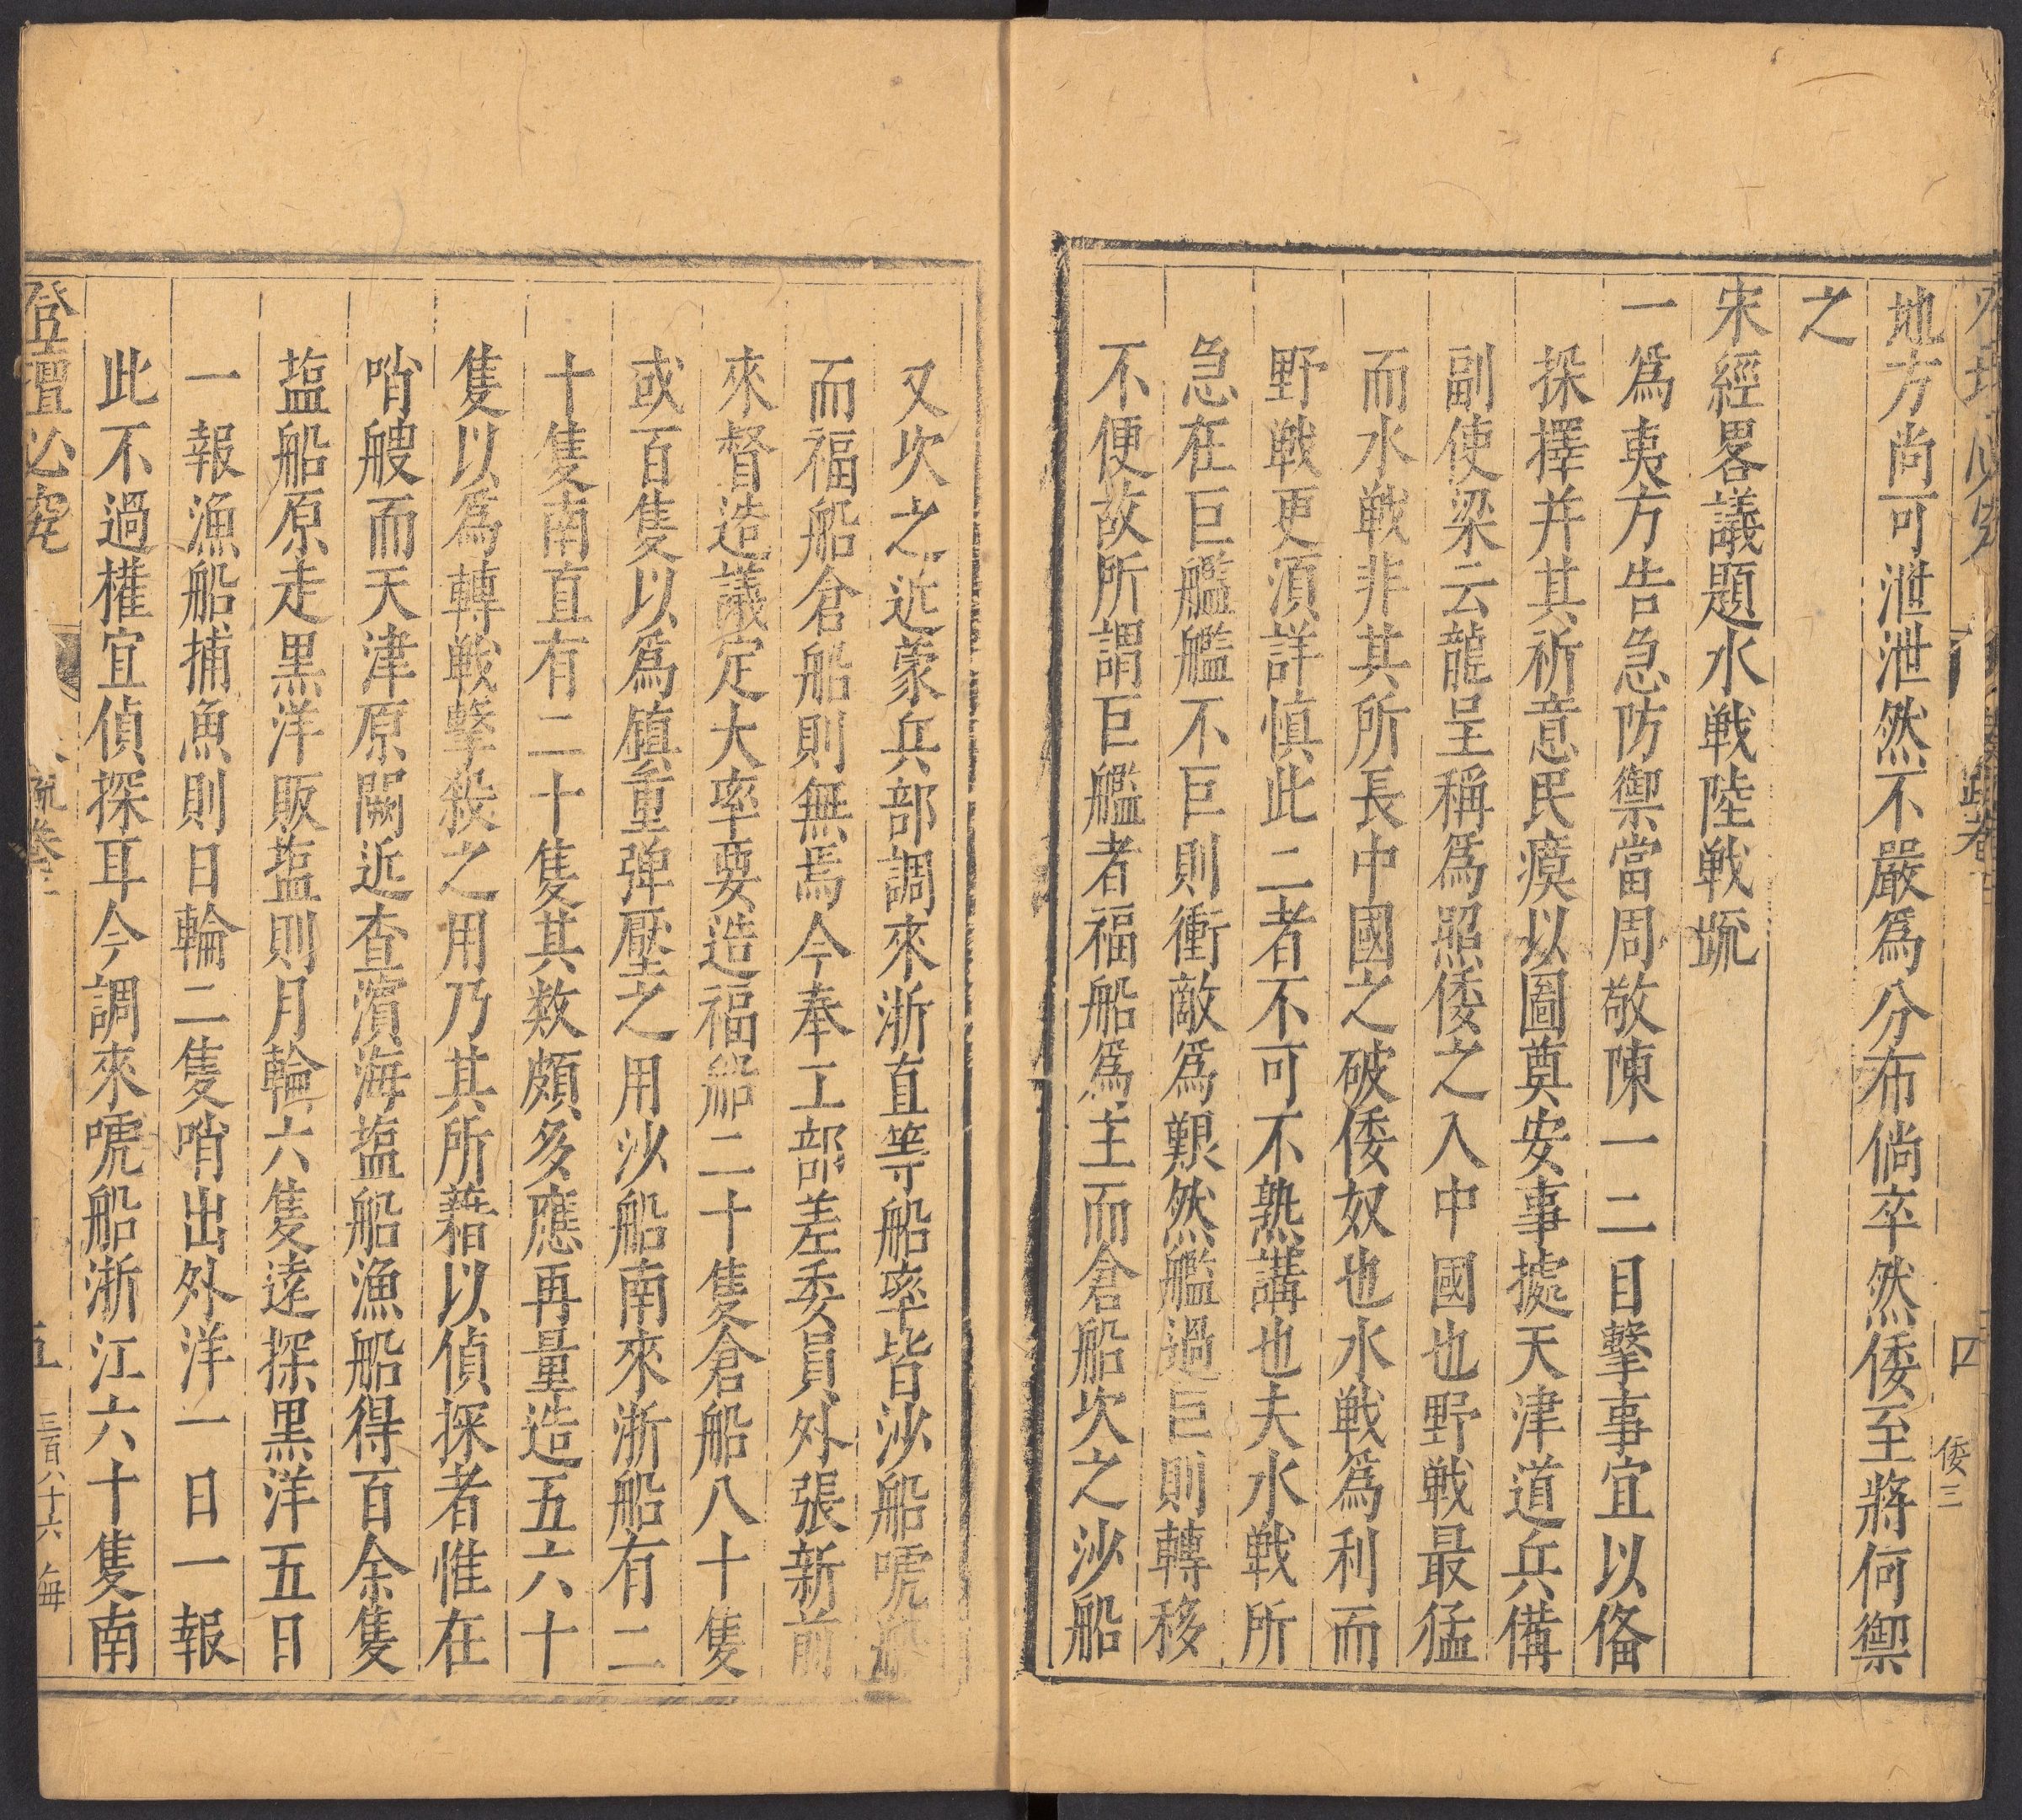 地方尚可泄泄然不嚴爲分布倘卒然倭至將何禦
之
宋經畧議題水戰陸戰疏
一爲夷方告急防禦當周敬陳一二目擊事宜以俻
採擇并其祈意民瘼以圖奠安事據天津道兵備
副使梁云龍呈稱爲照倭之入中國也野戰最猛
而水戰非其所長中國之破倭奴也水戰爲利而
野戰更湏詳慎此二者不可不熟講也夫水戰所
急在巨艦艦不巨則衝敵爲艱然艦過巨則轉移
不便故所謂巨艦者福船爲主而倉船次之沙船
又次之近蒙兵部調來浙直等船率皆沙船唬
而福船倉船則無焉今奉工部差委員外張新前
來督造議定大率要造福船二十隻倉船八十隻
或百隻以爲鎮重弹壓之用沙船南來浙船有二
十隻南直有二十隻其数頗多應再量造五六十
隻以爲轉戰擊殺之用乃其所藉以偵探者惟在
哨艘而天津原闕近查濱海塩船漁船得百余隻
塩船原走黒洋販塩則月輪六隻遠探黒洋五日
一報漁船捕魚則日輪二隻哨出外洋一日一報
此不過權宜偵探耳今調來唬船浙江六十隻南
登壇必究
疏卷二
五
三百八十六
每
四
倭三